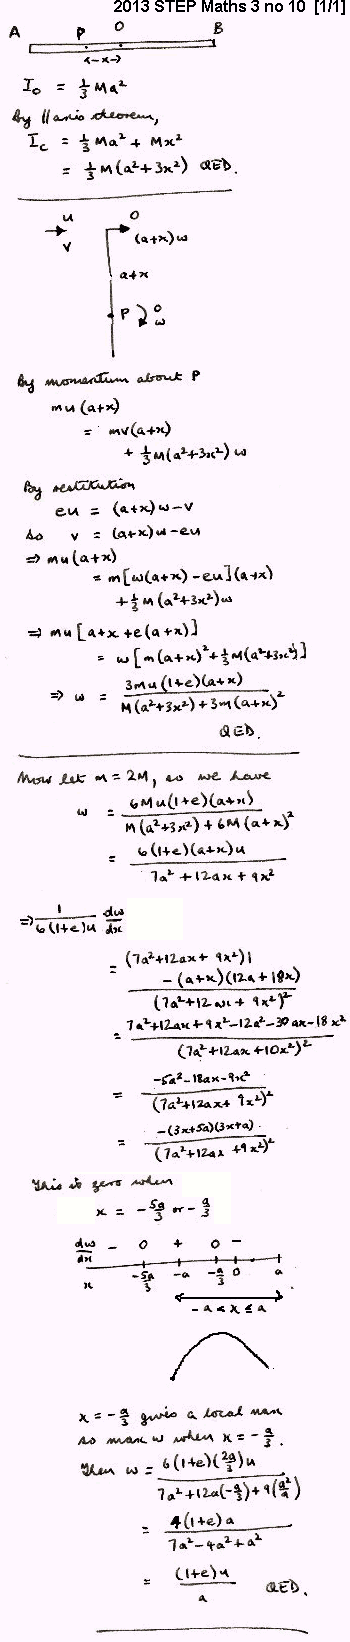 2013 STEP Maths 3 no 10 [1/1]
A P O B
←x→
I₀ = ⅓Ma²
By //axis theorem,
I_c = ⅓Ma² + Mx²
= ⅓M(a²+3x²) QED.
u O
v (a+x)ω
a+x
P 0
ω
By momentum about P
mu(a+x)
= mv(a+x)
+ ⅓M(a²+3x²)ω
By restitution
eu = (a+x)ω-v
so v = (a+x)ω-eu
⇒ mu(a+x)
= m[ω(a+x)-eu](a+x)
+⅓M(a²+3x²)ω
⇒ mu[a+x+e(a+x)]
= ω[m(a+x)²+⅓M(a²+3x²)]
⇒ ω = 3mu(1+e)(a+x) / M(a²+3x²)+3m(a+x)²
QED.
Now let m = 2M, so we have
ω = 6Mu(1+e)(a+x) / M(a²+3x²)+6M(a+x)²
= 6(1+e)(a+x)u / 7a²+12ax+9x²
⇒ 1/6(1+e)u dω/dx
= (7a²+12ax+9x²)1 -(a+x)(12a+18x) / (7a²+12ax+9x²)²
= 7a²+12ax+9x²-12a²-30ax-18x² / (7a²+12ax+10x²)²
= -5a²-18ax-9x² / (7a²+12ax+9x²)²
= -(3x+5a)(3x+a) / (7a²+12ax+9x²)²
This is zero when
x = -5a/3 or -a/3
dω/dx - 0 + 0 -
x -5a/3 -a -a/3 0 a
-a≤x≤a
x = -a/3 gives a local max
so max ω when x = -a/3.
Then ω = 6(1+e)(2a/3)u / 7a²+12a(-a/3)+9(a²/9)
= 4(1+e)a / 7a²-4a²+a²
= (1+e)u / a QED.